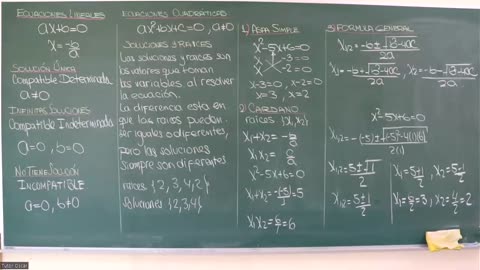 ECUACIONES LINEALES
ax+b=0
x=-b/a
SOLUCIÓN ÚNICA
Compatible Determinada
a≠0
INFINITAS SOLUCIONES
Compatible Indeterminada
a=0, b=0
NO TIENE SOLUCIÓN
INCOMPATIBLE
a=0, b≠0
ECUACIONES CUADRÁTICAS
ax²+bx+c=0, a≠0
SOLUCIONES Y RAICES
Las soluciones y raices son
los valores que toman
las variables al resolver
la ecuación.
La diferencia esta en
que las raices pueden
ser iguales o diferentes,
pero las soluciones
siempre son diferentes
raices {2, 3, 4, 2}
soluciones {2, 3, 4}
1) ASPA SIMPLE
x²-5x+6=0
x -3=0
x -2=0
x-3=0, x-2=0
x=3, x=2
2) CARDANO
raices {x₁, x₂}
x₁+x₂=-b/a
x₁x₂=c/a
x²-5x+6=0
x₁+x₂=-(-5)/1=5
x₁x₂=6/1=6
3) FORMULA GENERAL
x₁,₂=-b±√b²-4ac/2a
x₁=-b+√b²-4ac/2a, x₂=-b-√b²-4ac/2a
x²-5x+6=0
x₁,₂=-(-5)±√(-5)²-4(1)(6)/2(1)
x₁,₂=5±√1/2
x₁,₂=5±1/2
x₁=5+1/2, x₂=5-1/2
x₁=6/2=3, x₂=4/2=2
Tutor Oscar